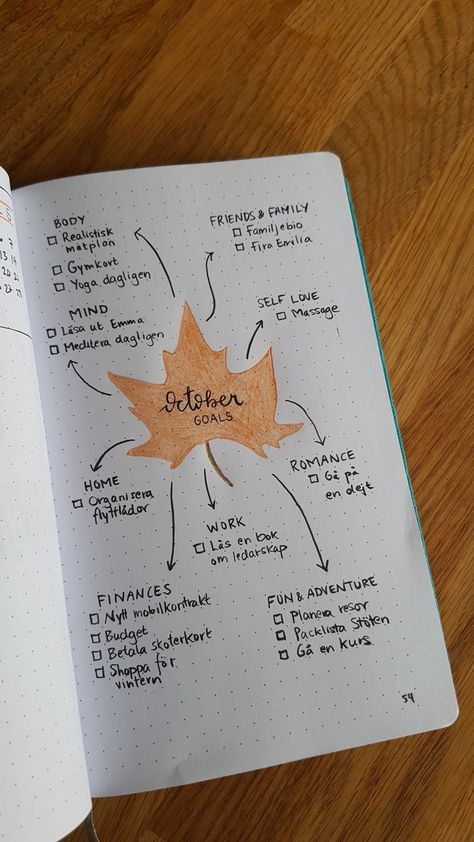 BODY
Realistisk
matplan
Gymkort
Yoga dagligen
FRIENDS & FAMILY
Familjebio
Fira Emilia
MIND
Läsa ut Emma
Meditera dagligen
SELF LOVE
Massage
October
GOALS
HOME
Organisera
flyttlådor
ROMANCE
Gå på
en dejt
WORK
Läs en bok
om ledarskap
FINANCES
Nytt mobilkontrakt
Budget
Betala skoterkort
Shoppa för
vintern
FUN & ADVENTURE
Planera resor
Packlista Stöten
Gå en kurs
54